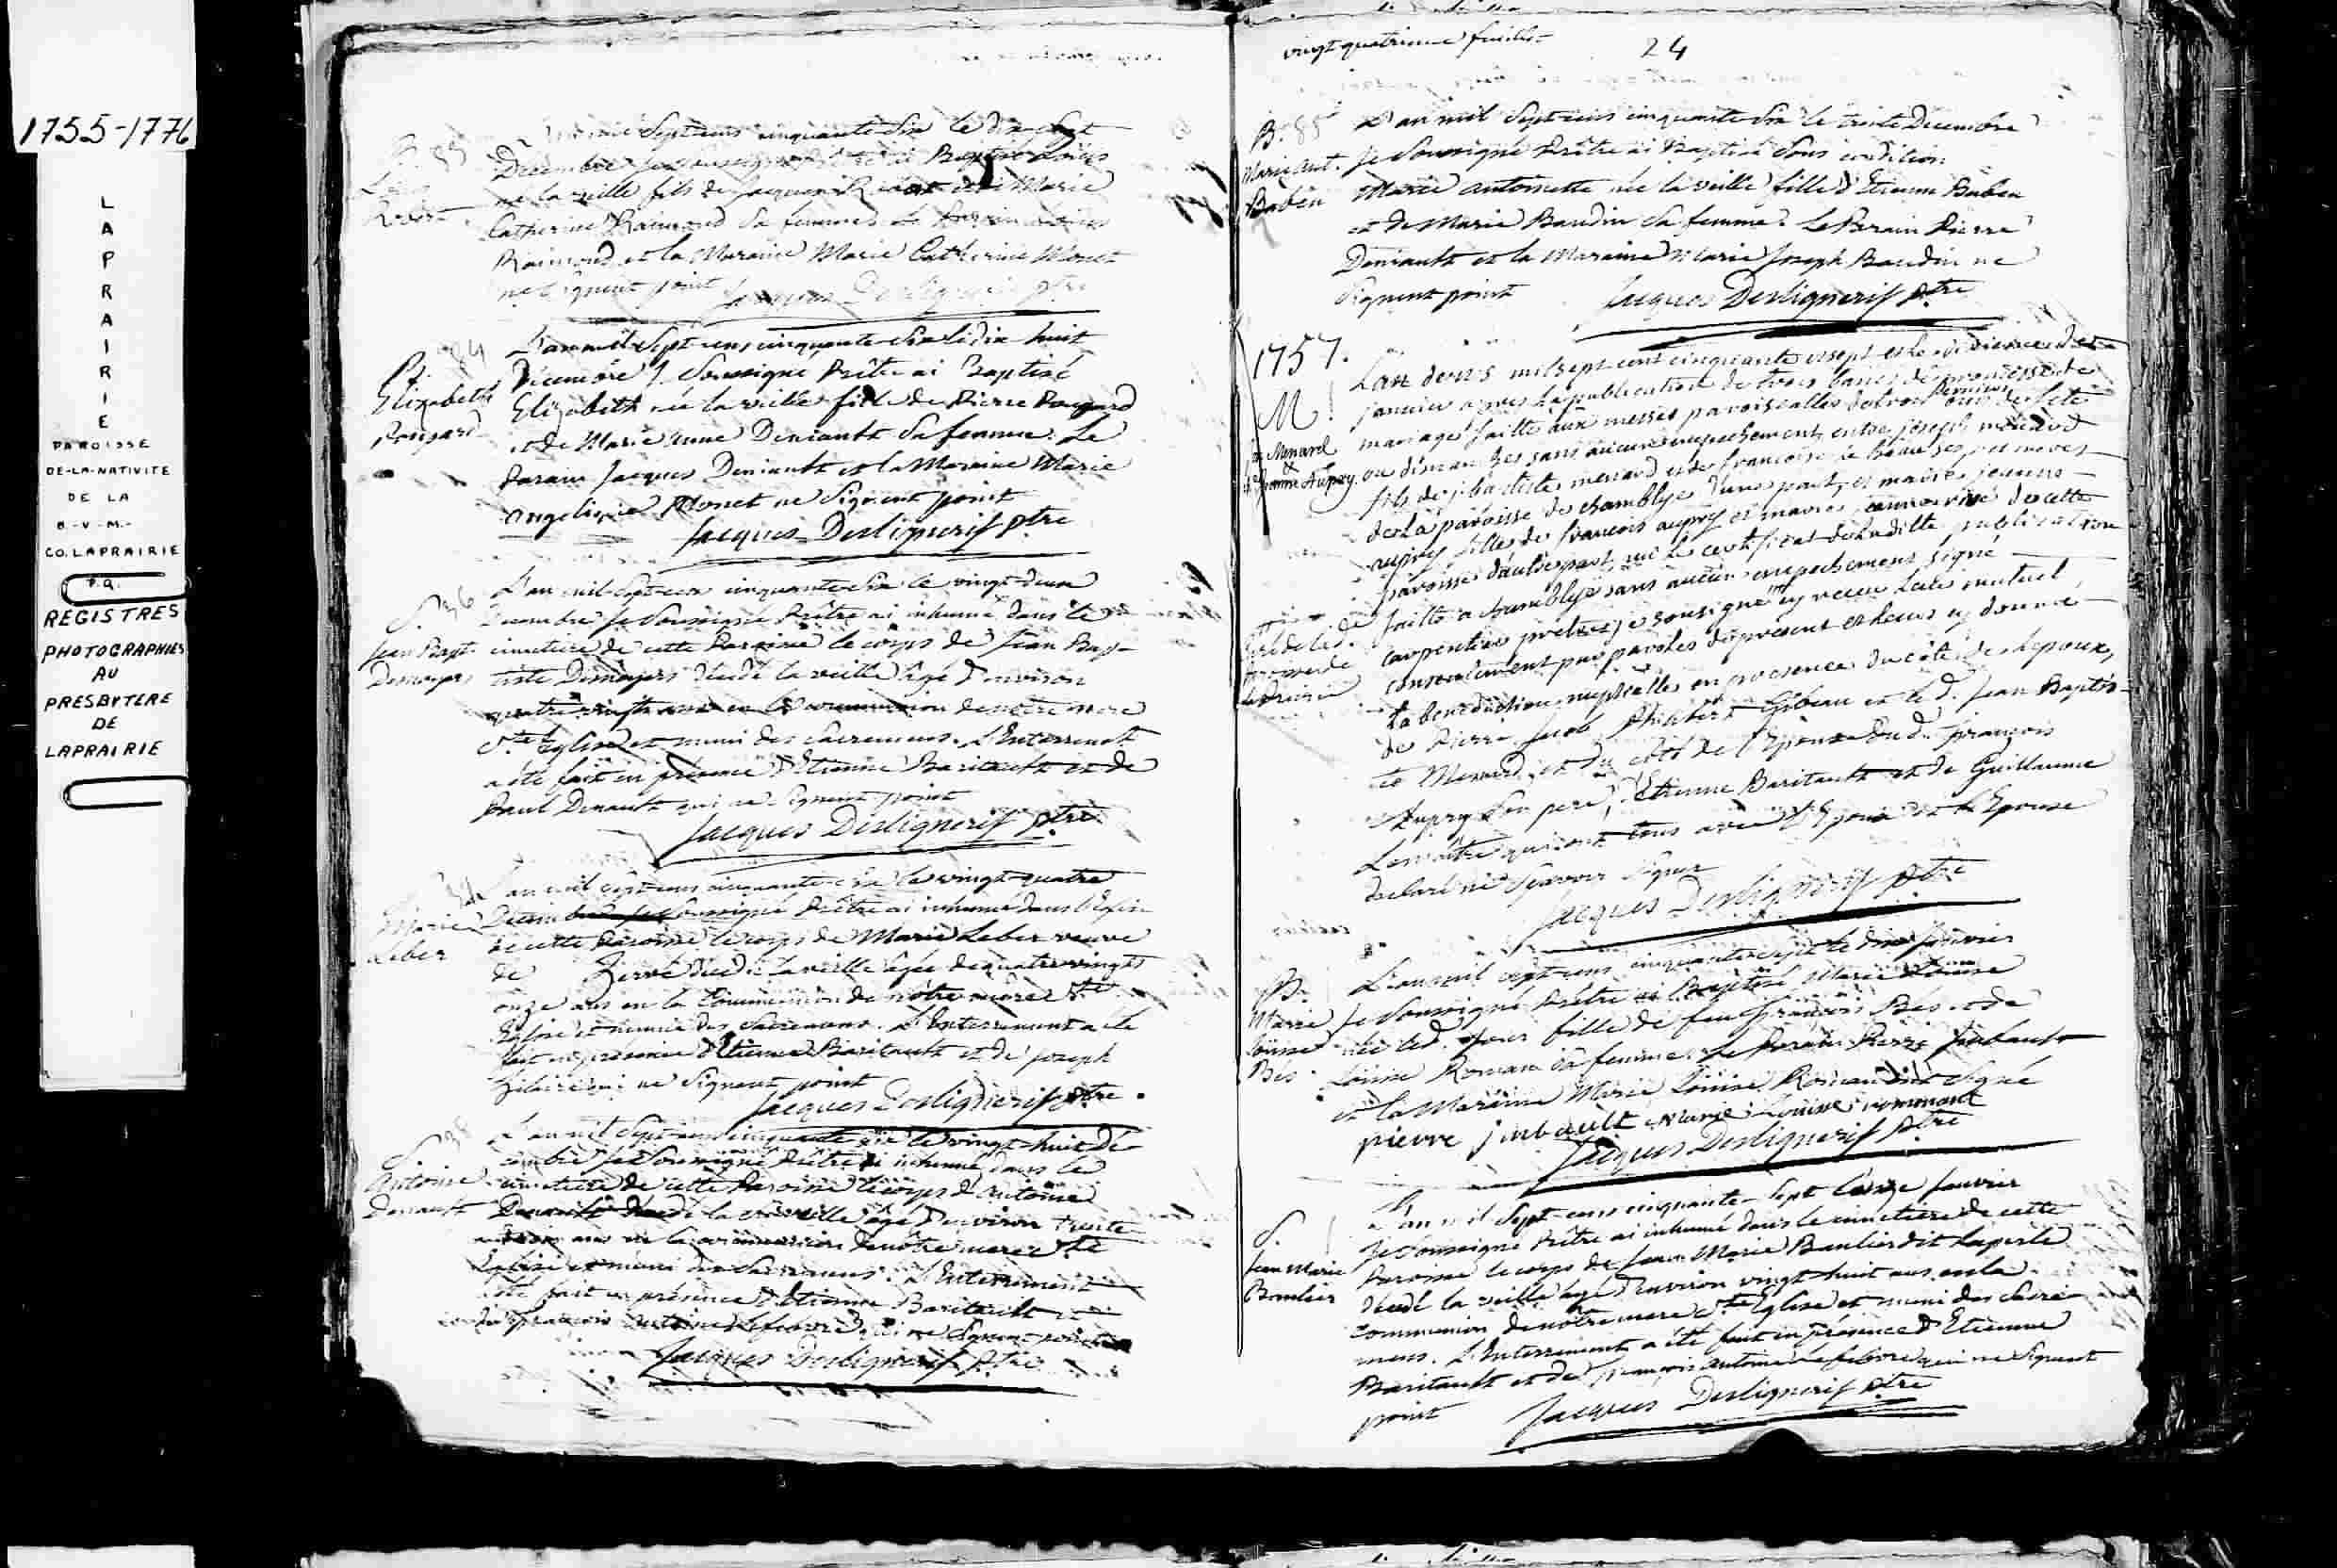 1755-1776
L
A
P
R
A
I
R
I
E
PAROISSE
DE-LA-NATIVITE
DE LA
B.-V.-M.-
CO. LAPRAIRIE
P.Q.
REGISTRES
PHOTOGRAPHIES
AU
PRESBYTERE
DE
LAPRAIRIE
Sept cens cinquante Six le dix Sept
Decembre Baptisé Louis
né la veille fils de Jacques et de Marie
Catherine Raimond Sa femme Le
Raimond et la Maraine Marie Catherine Monet
ne Signent point Jacques Desligneris ptre
B. 84
Elizabeth
L'an mil Sept cens cinquante Six le dix huit
Decembre Je Soussigné Prêtre ai Baptisé
Elizabeth née la veille fille de Pierre
et de Marie Anne Deniault Sa femme. Le
Parain Jacques Deniault et la Maraine Marie
Angelique Monet ne Signent point
Jacques Desligneris ptre
S. 36
Jean Bapt.
L'an mil Sept cens cinquante Six le vingt deux
Decembre Je Soussigné Prêtre ai inhumé dans le
cimetiere de cette Paroisse le corps de Jean Bap-
tiste décédé la veille âgé d'environ
quatre vingts ans en la communion de notre mere
Ste Eglise et muni des Sacremens. L'Enterrement
a été fait en présence d'Etienne Baritault et de
Paul Denault qui ne Signent point
Jacques Desligneris ptre
Marie
Leber
L'an mil Sept cens cinquante Six le vingt quatre
Decembre Je Soussigné Prêtre ai inhumé dans l'Eglise
de cette Paroisse le corps de Marie Leber veuve
de Hervé décédée la veille âgée de quatre vingts
onze ans en la Communion de nôtre mere Ste
Eglise et munie des Sacremens. L'Enterrement a été
fait en présence d'Etienne Baritault et de Joseph
qui ne Signent point
Jacques Desligneris ptre.
S 38
Antoine
Denault
L'an mil Sept cens cinquante six le vingt huit De-
cembre Je Soussigné Prêtre ai inhumé dans le
cimetiere de cette Paroisse le corps d'Antoine
Denault décédé la veille âgé d'environ trente
ans en la communion de nôtre mere Ste
Eglise et muni des Sacremens. L'Enterrement
a été fait en présence d'Etienne Baritault et
de François Antoine Lefebvre qui ne Signent point
Jacques Desligneris ptre
vingt quatrieme feuille
24
B. 85
Marie Ant.
Babeu
L'an mil Sept cens cinquante Six le trente Decembre
Je Soussigné Prêtre ai Baptisé Sous condition
Marie Antoinette née la veille fille d'Etienne Babeu
et de Marie Baudin Sa femme. Le Parain Pierre
Deniault et la Maraine Marie Joseph Baudin ne
Signent point Jacques Desligneris ptre
1757.
M
Menard
&
Jeanne Aupry
L'an mil sept cent cinquante et sept
janvier après la publication de trois bans de promesse de
mariage faitte aux messes paroissialles de trois jours de fete
ou dimanches sans aucun empechement entre joseph menard
fils de j. baptiste menard et de francoise
de la paroisse de chambly d'une part, et marie jeanne
aupry fille de francois aupry et de marie de cette
paroisse d'autre part, vu le certificat de la ditte publication
faitte a chambly sans aucun empechement signé
carpentier prêtre je sousigné ay receu leur mutuel
consentement par paroles de present et leurs ay donné
la benediction nuptialle en presence du côté de l'epoux,
de Pierre Jacob, Philibert Gibeau et led. Jean Baptis-
te Menard, et du côté de l'Epouse dud. François
Aupry Son pere, d'Etienne Baritault et de Guillaume
Lemaitre qui ont tous avec l'Epoux et l'Epouse
declaré ne Sçavoir Signer
Jacques Desligneris ptre
B.
Marie
Louise
Bés
L'an mil sept cens cinquante sept le dix Janvier
Je Soussigné Prêtre ai Baptisé Marie Louise
née led. jour fille de feu François Bés et de
Louise Roman Sa femme. Le Parain Pierre Jinbault
et la Maraine Marie Louise Roman ont Signé
pierre jinbault Marie Louise rommant
Jacques Desligneris ptre
S.
Jean Marie
Baulier
L'an mil Sept cens cinquante Sept l'onze Janvier
Je Soussigné Prêtre ai inhumé dans le cimetiere de cette
Paroisse le corps de Jean Marie Baulier dit Laperle
décédé la veille âgé d'environ vingt huit ans en la
communion de nôtre mere Ste Eglise et muni des Sacre-
mens. L'Enterrement a été fait en présence d'Etienne
Baritault et de François Antoine Lefebvre qui ne Signent
point Jacques Desligneris ptre